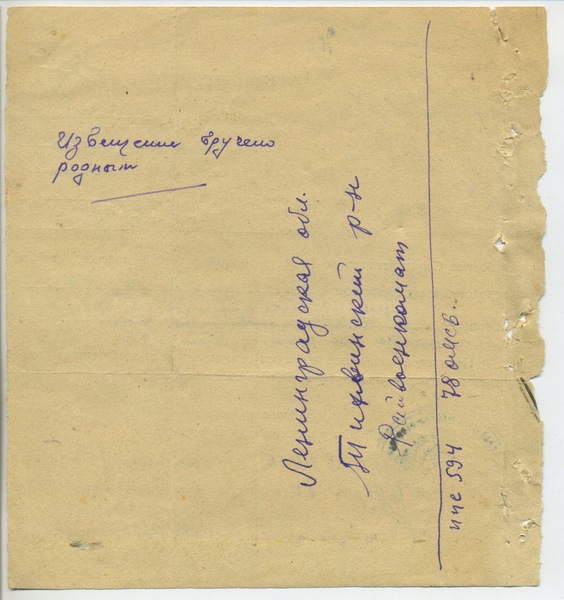 Извещение вручено
родным
Ленинградская обл.
Тихвинский р-н
Райвоенкомат
ппс 594 78 омсб.